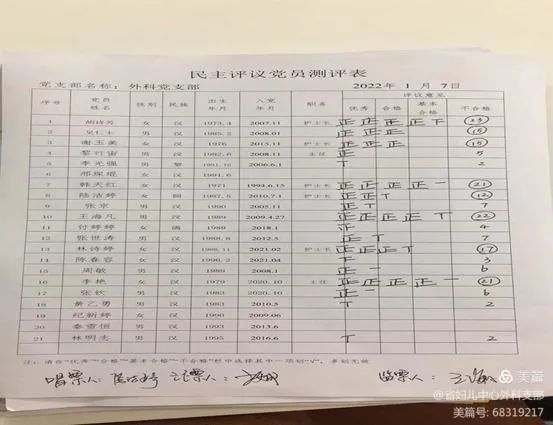 民主评议党员测评表
党支部名称：外科党支部 2022年 1 月 7日
序号 党员姓名 性别 民族 出生年月 入党年月 职务 评议意见
优秀 合格 基本合格 不合格
1 女 汉 1973.4 2007.11 护士长 正正正正下 23
2 男 汉 2008.01 正正正 15
3 谢玉美 女 汉 1976 2015.11 护士长 正正正 15
4 黎行宙 男 汉 2008.11 主任 正 5
5 李光强 男 黎 2006.6.1 T 2
6 邢琛琨 女 汉 1991.6
7 韩天红 女 汉 1971 1994.6.15 护士长 正正正正一 21
8 陆洁婷 女 1987.5 2010.7.1 护士长 正正T 12
9 张京 男 汉 1980 2005.11 正T 7
10 王海凡 男 汉 1989 2009.4.27 正正正正T 22
11 付婷婷 女 满 1989 2018.1 4
12 张世涛 男 汉 2012.5 正T 7
13 林诗婷 女 汉 2021.02 护士长 正正正T 17
14 陈春容 女 汉 1996.2 2021.04 3
15 周敏 男 汉 1989 2008.1 正一 6
16 李艳 女 汉 1979 2020.10 主任 正正正正一 21
17 张钦 男 汉 1983 2020.10 正一 6
18 黄乙勇 男 汉 1983 2010.5 T 2
19 纪新婷 女 汉 1990 2009.06
20 秦雪恒 男 汉 1993 2013.6
21 林明志 男 汉 1995 2016.6 T 2
注：请在“优秀”“合格”“基本合格”“不合格”栏中选择其中一项划“√”，多划无效
唱票人： 计票人： 监票人：
美篇
@省妇儿中心外科支部
美篇号: 68319217